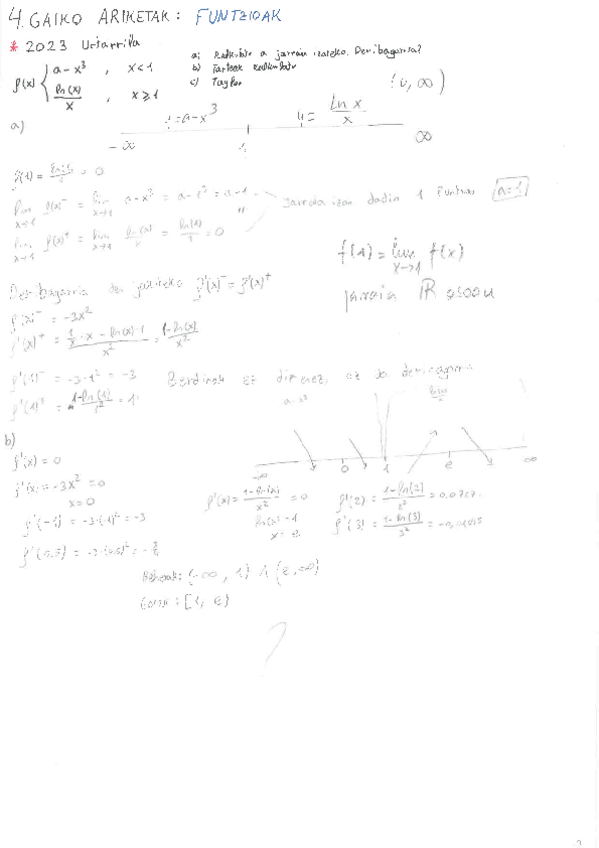 4. GAIKO ARIKETAK: FUNTZIOAK
* 2023 Urtarrila
a) Kalkulatu a jarraia izateko. Deribagarria?
b) Tarteak kalkulatu
c) Taylor
f(x) { a-x³ , x<1
ln(x)/x , x≥1
(0, ∞)
a)
y=a-x³
y= ln x/x
-∞ 1 ∞
f(1) = ln(1)/1 = 0
lim x→1 f(x)⁻ = lim x→1 a-x³ = a-1³ = a-1
"
lim x→1 f(x)⁺ = lim x→1 ln(x)/x = ln(1)/1 = 0
jarraia izan dadin 1 puntuan a=1
f(1) = lim x→1 f(x)
jarraia ℝ osoan
Deribagarria den jakiteko f'(x)⁻ = f'(x)⁺
f'(x)⁻ = -3x²
f'(x)⁺ = (1/x · x - ln(x)·1)/x² = (1-ln(x))/x²
f'(1)⁻ = -3·1² = -3
f'(1)⁺ = (1-ln(1))/1² = 1
Berdinak ez direnez, ez da deribagarria
a-x³
ln(x)/x
b)
-∞ 0 1 e 3 ∞
f'(x) = 0
f'(x) = -3x² = 0
x=0
f'(-1) = -3·(-1)² = -3
f'(0,5) = -3·(0,5)² = -3/4
f'(x) = (1-ln(x))/x² = 0
ln(x) = 1
x = e
f'(2) = (1-ln(2))/2² = 0,0767
f'(3) = (1-ln(3))/3² =
Beherak: (-∞, 1) ∧ (e, ∞)
Gorak: [1, e)
?